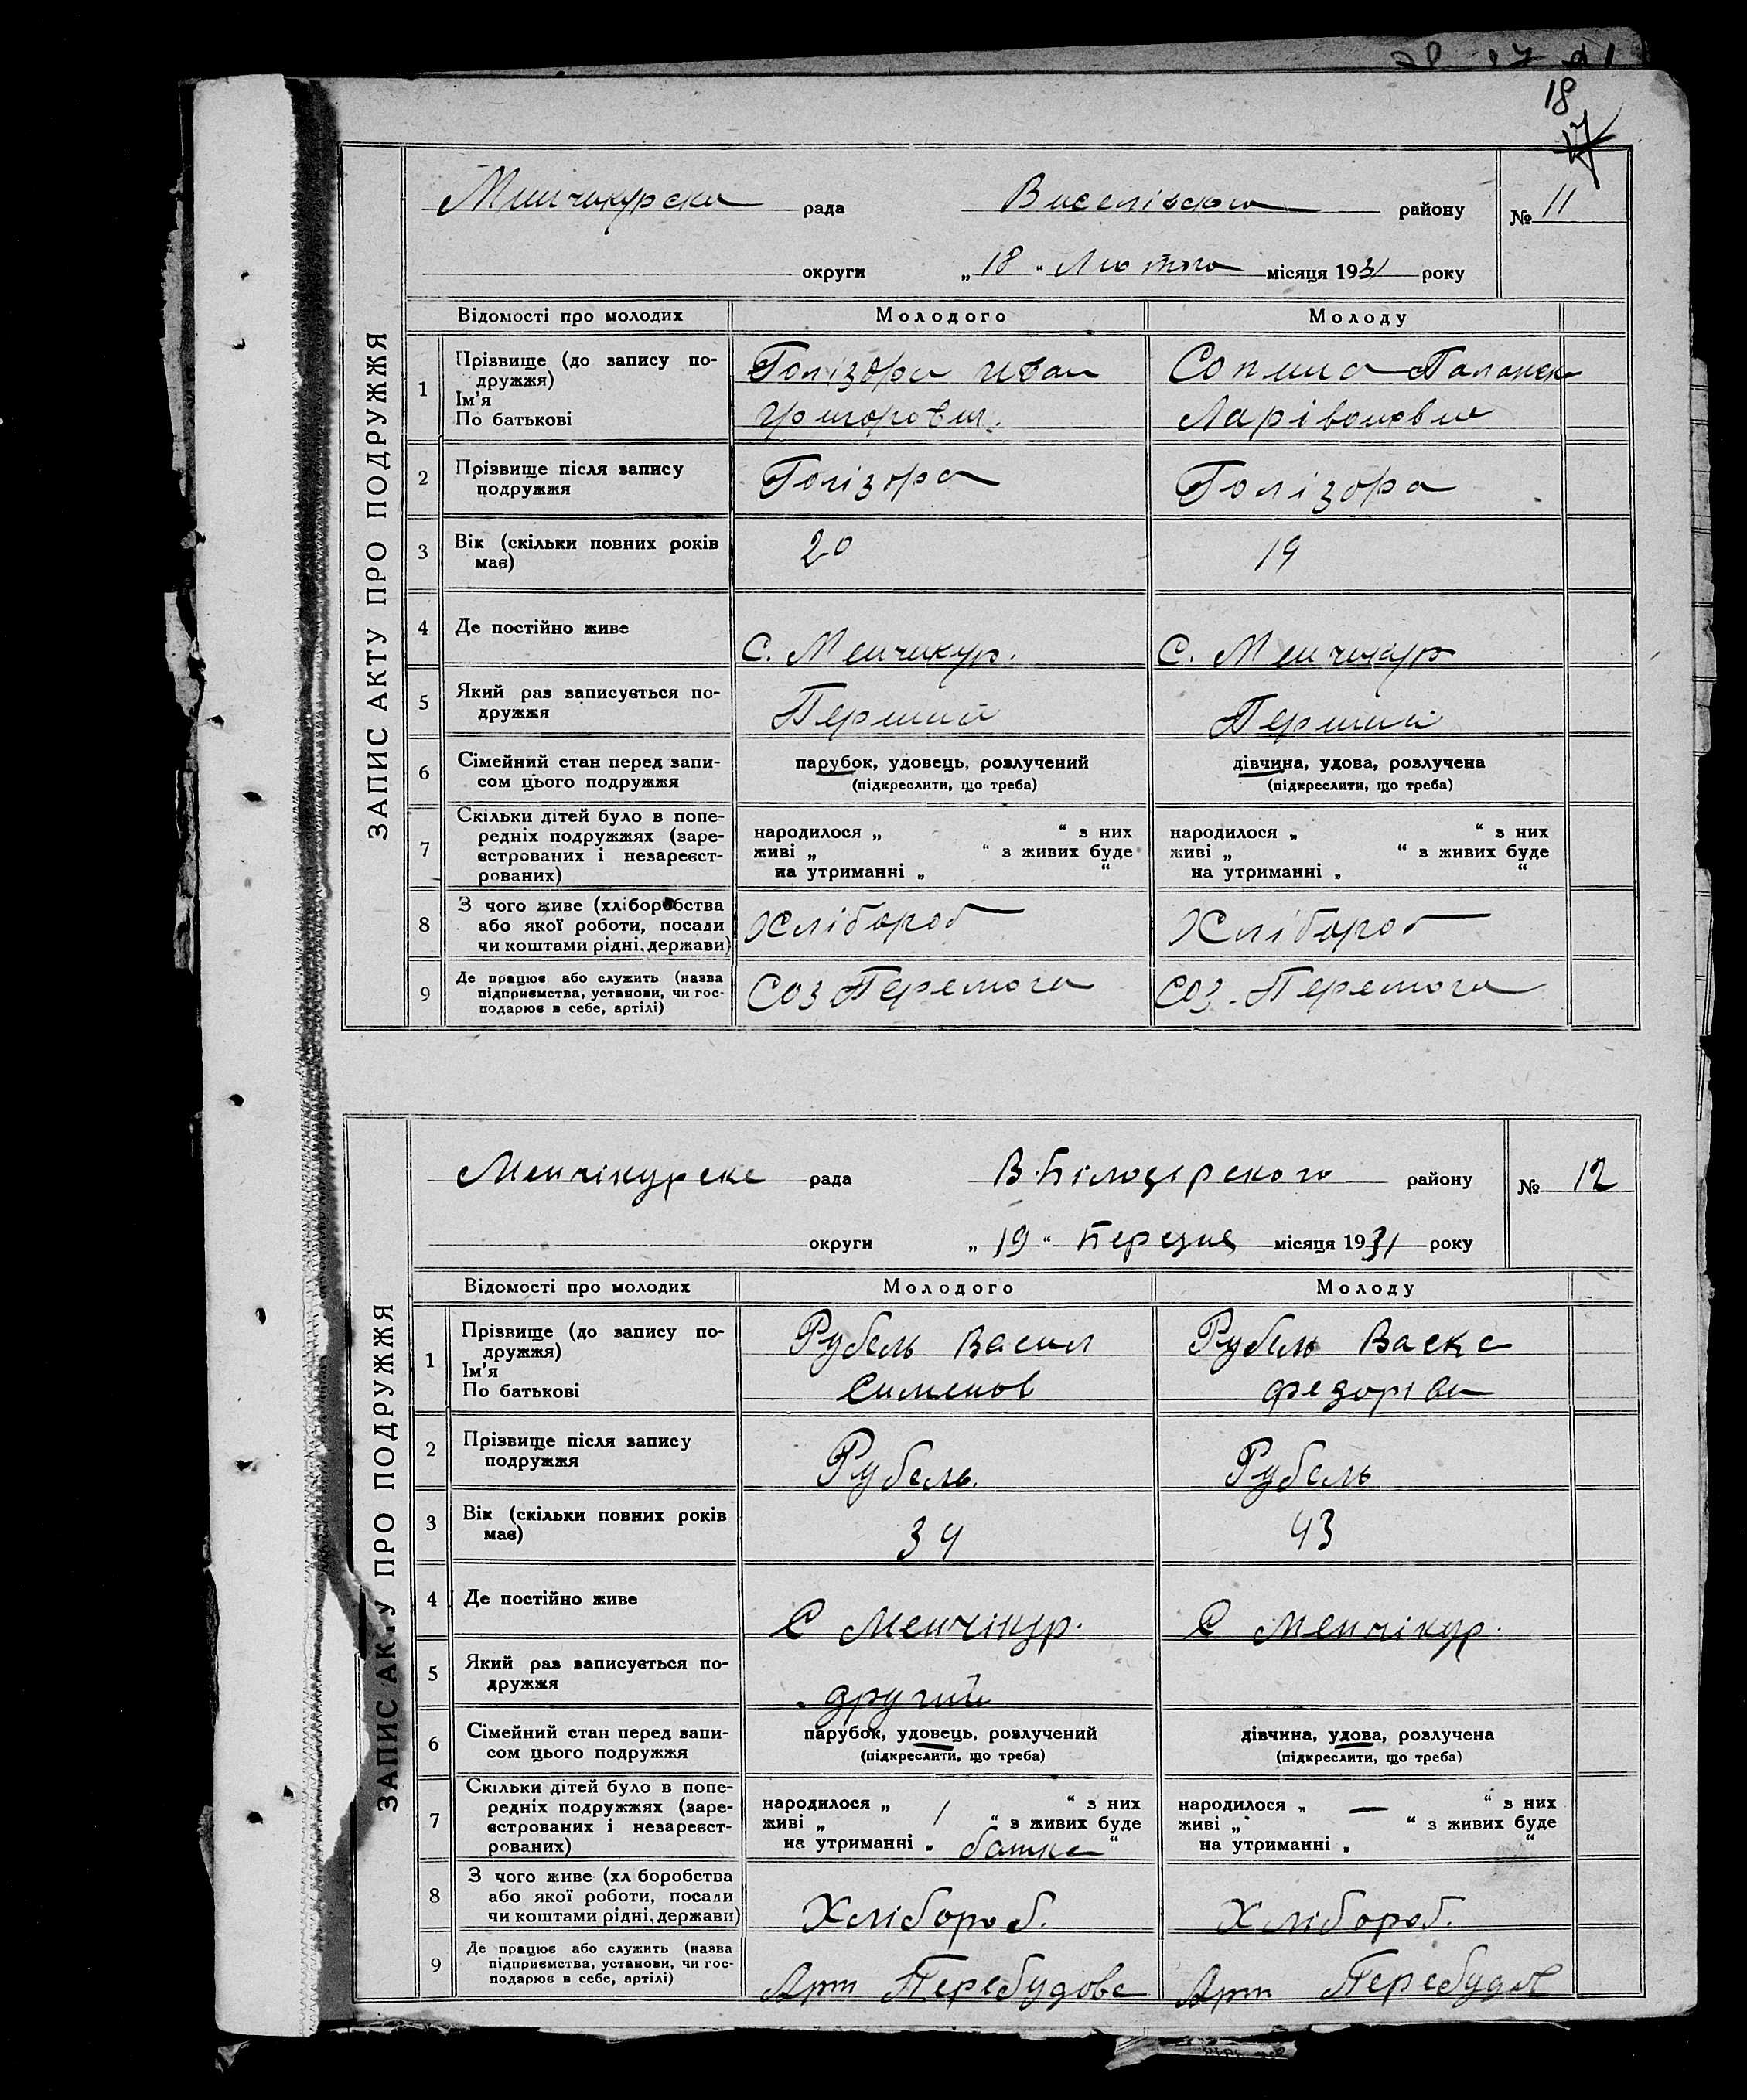 18
17
ЗАПИС АКТУ ПРО ПОДРУЖЖЯ
Минчикурска рада Виселівского району № 11
округи „ 18 “ Лютого місяця 1931 року
Відомості про молодих Молодого Молоду
1 Прізвище (до запису подружжя) Ім’я По батькові
Голізора Иван Сопина
Григорович Ларівоновна
2 Прізвище після запису подружжя Голізора Голізора
3 Вік (скільки повних років має) 20 19
4 Де постійно живе С. Менчикур. С. Менчикур
5 Який раз записується подружжя Перший Перший
6 Сімейний стан перед записом цього подружжя
парубок, удовець, розлучений дівчина, удова, розлучена
(підкреслити, що треба) (підкреслити, що треба)
7 Скільки дітей було в попередніх подружжях (зареєстрованих і незареєстрованих)
народилося „ “ з них народилося „ “ з них
живі „ “ з живих буде живі „ “ з живих буде
на утриманні „ “ на утриманні „ “
8 З чого живе (хліборобства або якої роботи, посади чи коштами рідні, держави) Хлібороб Хлібороб
9 Де працює або служить (назва підприємства, установи, чи господарює в себе, артілі) Соз Перемога Соз. Перемога
ЗАПИС АК.У ПРО ПОДРУЖЖЯ
Менчікурска рада В.Білозірского району № 12
округи „ 19 “ Березня місяця 1931 року
Відомості про молодих Молодого Молоду
1 Прізвище (до запису подружжя) Ім’я По батькові
Рубель Васил Рубель
Сименов Федорівн
2 Прізвище після запису подружжя Рубель. Рубель
3 Вік (скільки повних років має) 34 43
4 Де постійно живе С Менчікур. С Менчікур.
5 Який раз записується подружжя другий
6 Сімейний стан перед записом цього подружжя
парубок, удовець, розлучений дівчина, удова, розлучена
(підкреслити, що треба) (підкреслити, що треба)
7 Скільки дітей було в попередніх подружжях (зареєстрованих і незареєстрованих)
народилося „ 1 “ з них народилося „ — “ з них
живі „ “ з живих буде живі „ “ з живих буде
на утриманні „ “ на утриманні „ “
8 З чого живе (хл боробства або якої роботи, посади чи коштами рідні, держави) Хлібороб. Хлібороб.
9 Де працює або служить (назва підприємства, установи, чи господарює в себе, артілі) Арт Перебудова Арт Перебудов